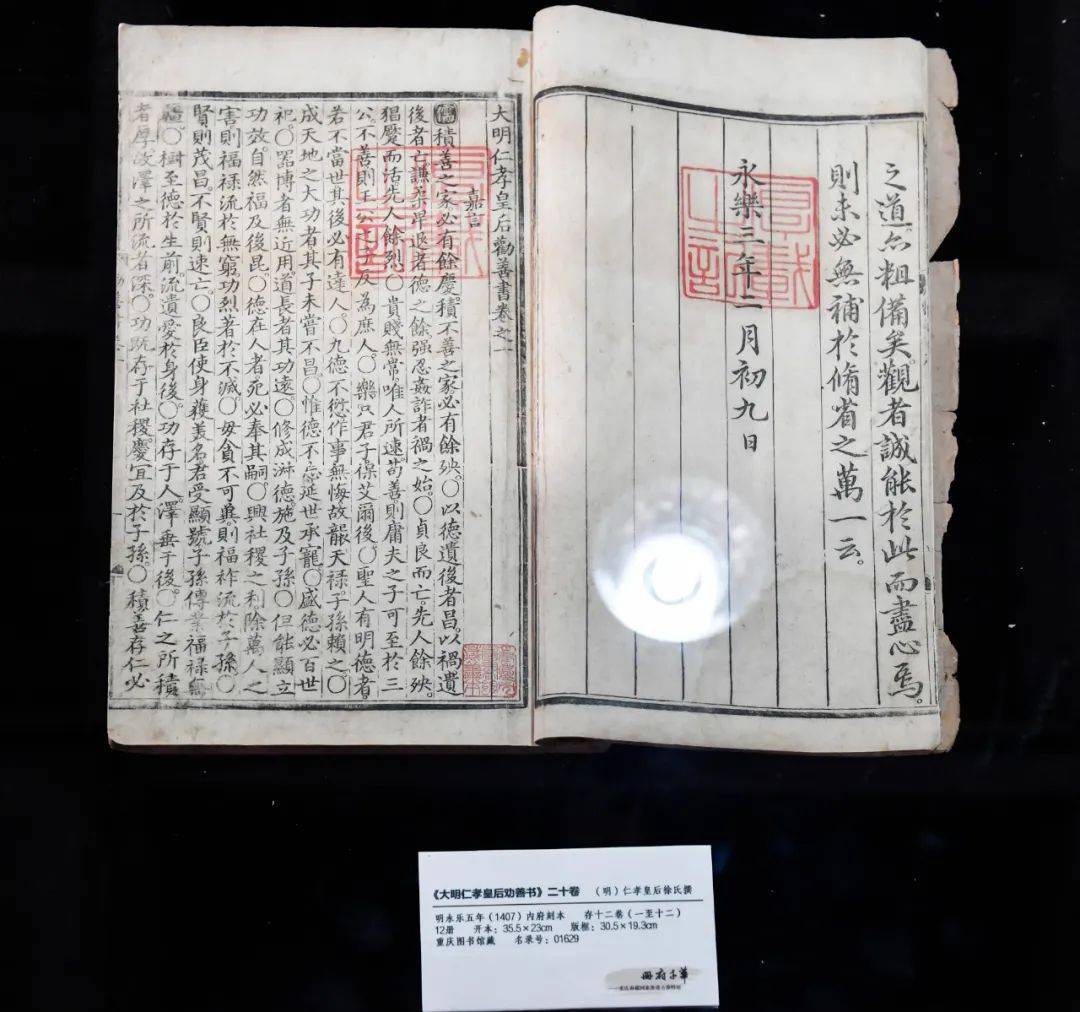 之道亦粗備矣。觀者誠能於此而盡心焉。
則未必無補於脩省之萬一云。
永樂三年二月初九日
大明仁孝皇后勸善書卷之一
嘉言
儒積善之家必有餘慶。積不善之家必有餘殃。〇以德遺後者昌。以禍遺
後者亡。謙柔卑退者德之餘。強忍姦詐者禍之始。〇貞良而亡。先人餘殃。
猖蹷而活。先人餘烈。〇貴賤無常。唯人所速。苟善。則庸夫之子可至於三
公。不善。則王公之子反為庶人。〇樂只君子。保艾爾後。〇聖人有明德者。
若不當世。其後必有達人。〇九德不愆。作事無悔。故襲天祿。子孫賴之。〇
成天地之大功者。其子未嘗不昌。〇惟德不忘。延世承寵。〇盛德必百世
祀。〇器博者無近用。道長者其功遠。〇修成淋德。施及子孫。〇但能顯立
功效。自然福及後昆。〇德在人者。死必奉其嗣。〇興社稷之利。除萬人之
害。則福祿流於無窮。功烈著於不滅。〇毋貪不可冀。則福祚流於子孫。〇
賢則茂昌。不賢則速亡。〇良臣使身獲美名。君受顯號。子孫傳業。福祿無
疆。〇樹至德於生前。流遺愛於身後。〇功存于人。澤垂于後。〇仁之所積
者厚。故澤之所流者深。〇功既存于社稷。慶宜及於子孫。〇積善存仁。必
《大明仁孝皇后劝善书》二十卷 （明）仁孝皇后徐氏撰
明永乐五年（1407）内府刻本 存十二卷（一至十二）
12册 开本：35.5×23cm 版框：30.5×19.3cm
重庆图书馆藏 名录号：01629
册府千華